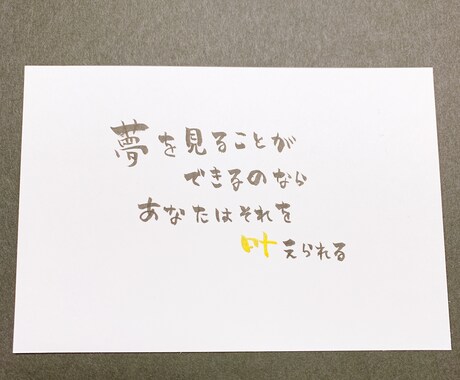 夢を見ることが
できるのなら
あなたはそれを
叶えられる